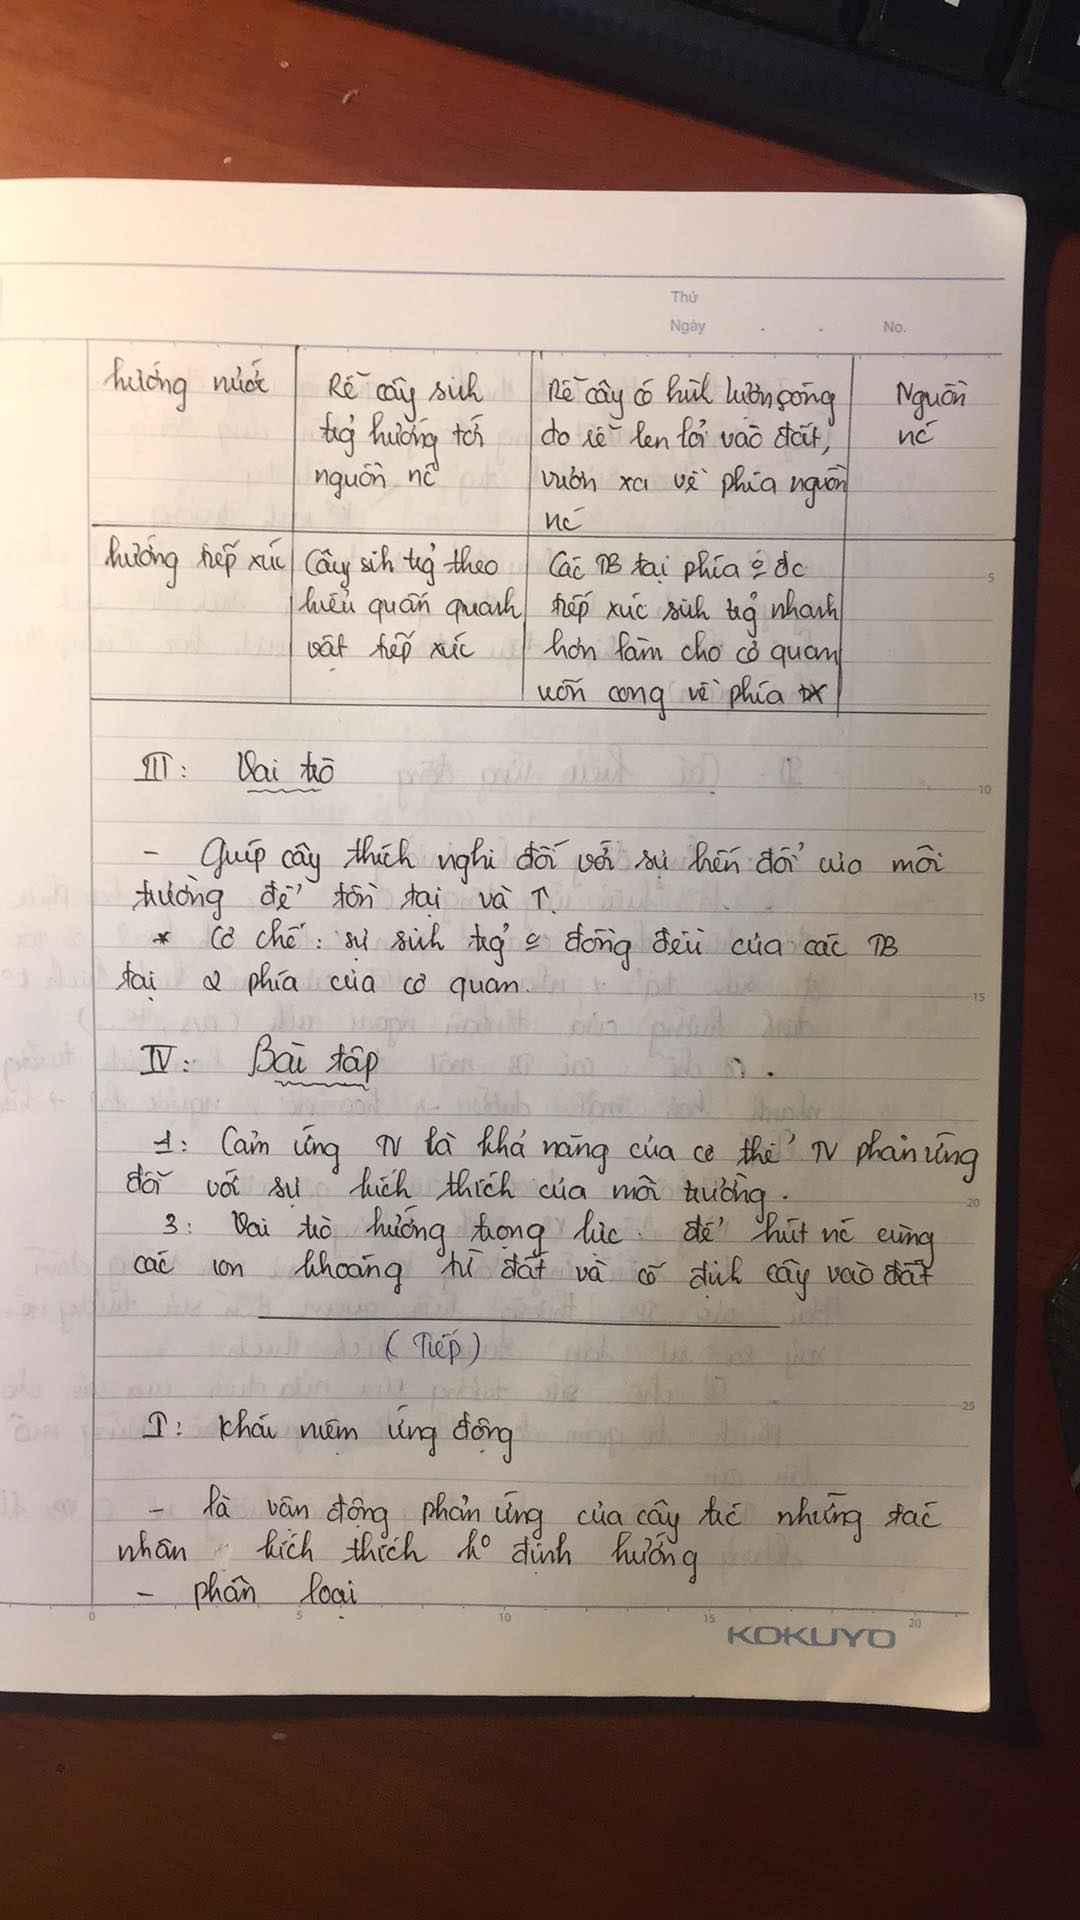 Thứ
Ngày . . No.
hướng nước
Rễ cây sinh
trg̉ hướng tới
nguồn nc
Rễ cây có hình lượn sóng
do rễ len lỏi vào đất,
vươn xa về phía nguồn
nc
Nguồn
nc
hướng tiếp xúc
Cây sih trg̉ theo
kiểu quấn quanh
vật tiếp xúc
Các TB tại phía đc
tiếp xúc sinh trg̉ nhanh
hơn làm cho cơ quan
uốn cong về phía tx
5
III: Vai trò
10
- Giúp cây thích nghi đối với sự biến đổi của môi
trường để tồn tại và ↑.
* Cơ chế: sự sinh trg̉ đồng đều của các TB
tại 2 phía của cơ quan.
15
IV: Bài tập
1: Cảm ứng TV là khả năng của cơ thể TV phản ứng
đối với sự kích thích của môi trường.
20
3: Vai trò hướng trọng lực: để hút nc cùng
các ion khoáng từ đất và cố định cây vào đất
(Tiếp)
25
I: Khái niệm ứng động
- là vận động phản ứng của cây trc những tác
nhân kích thích ko định hướng
- phân loại
0 5 10 15 20
KOKUYO